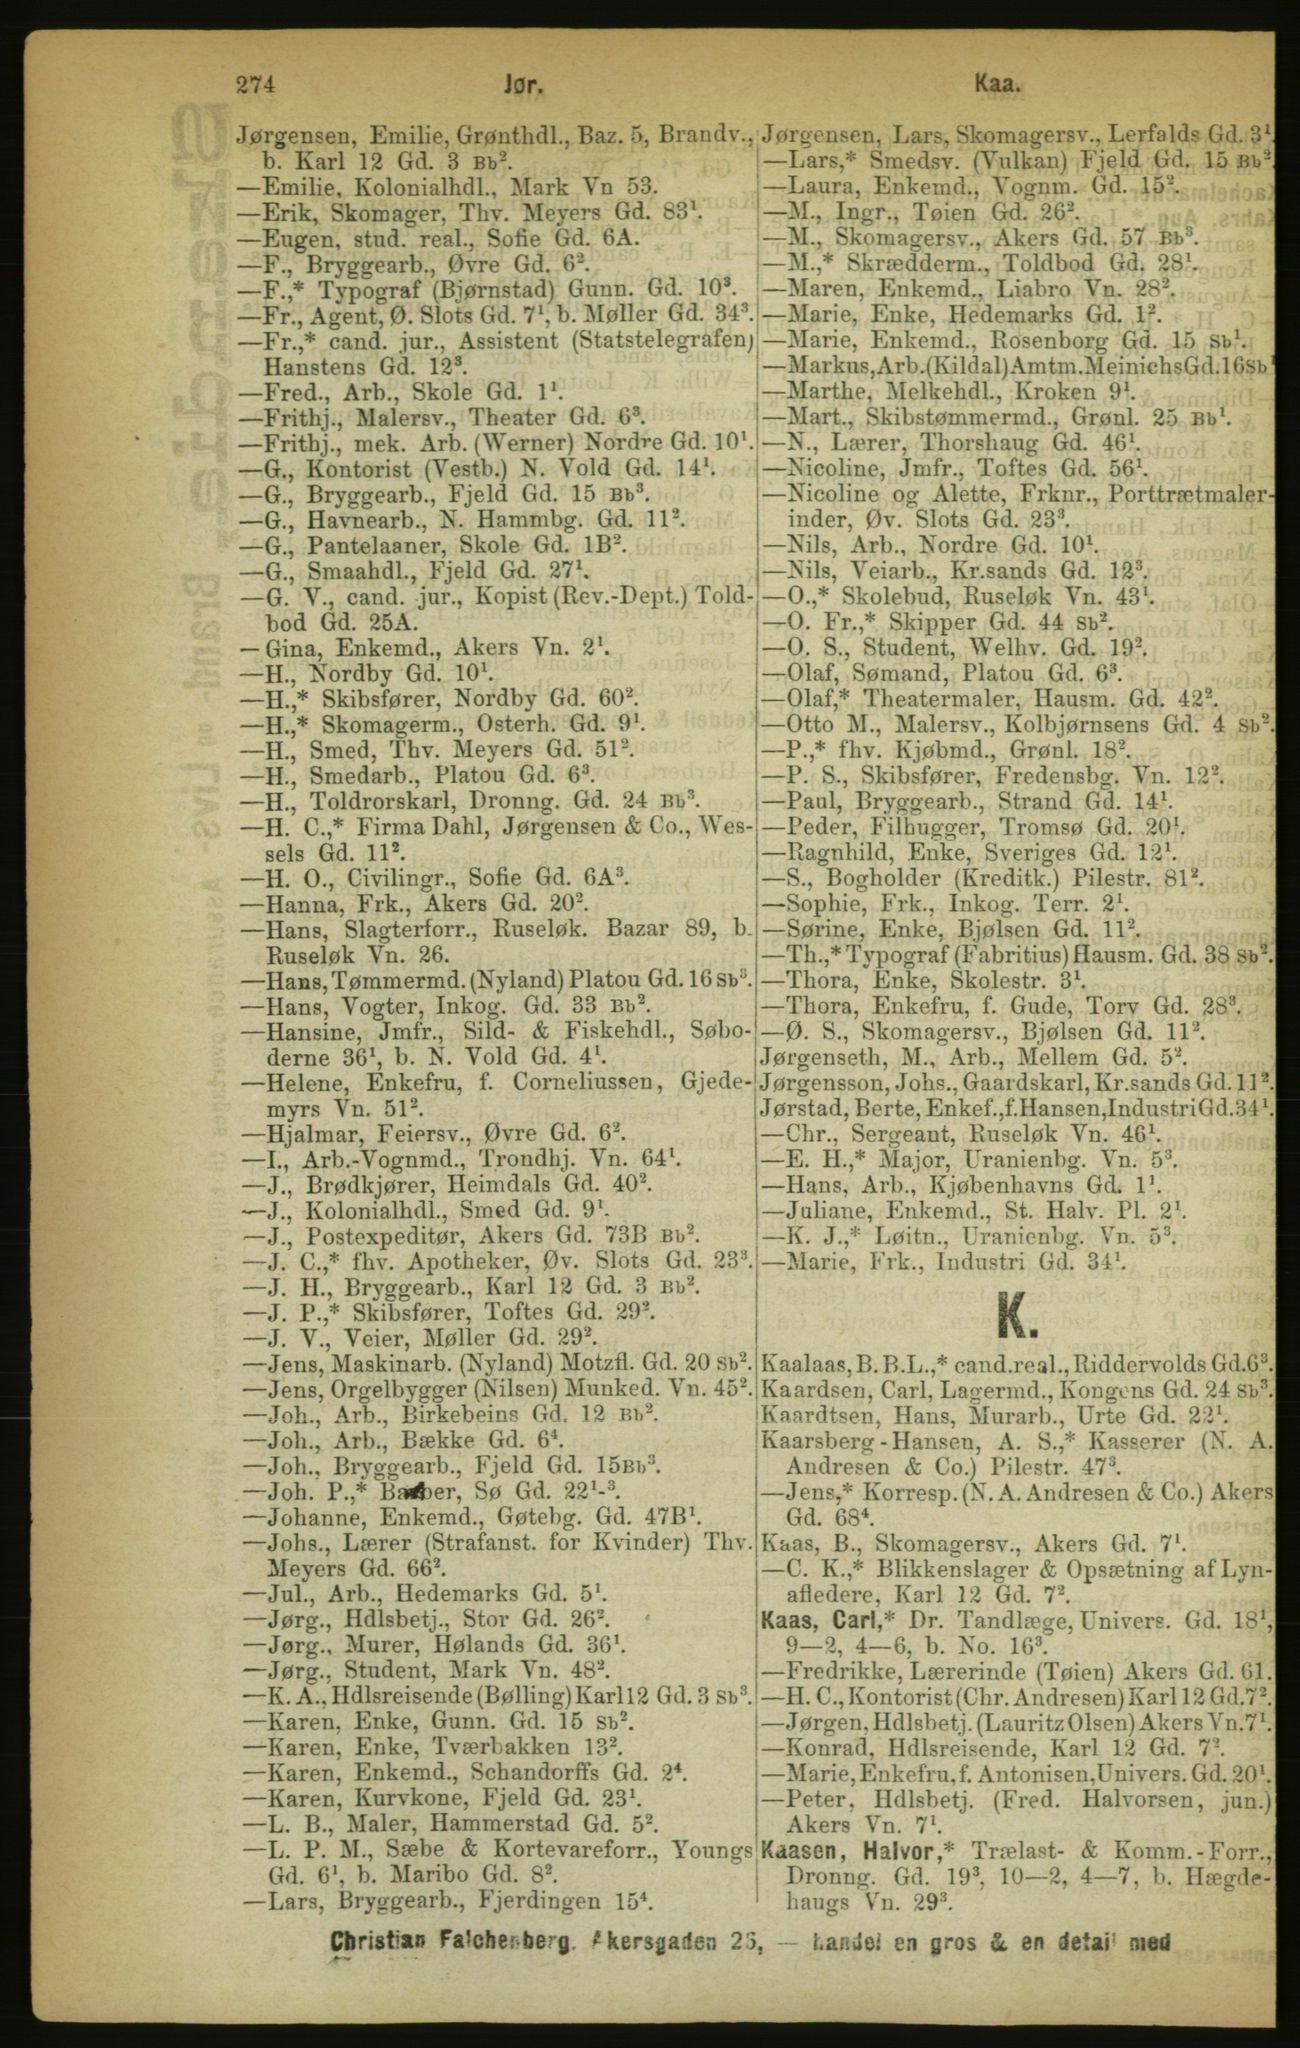 274 Jør. Kaa.
Jørgensen, Emilie, Grønthdl., Baz. 5, Brandv.,
b. Karl 12 Gd. 3 Bb².
—Emilie, Kolonialhdl., Mark Vn 53.
—Erik, Skomager, Thv. Meyers Gd. 83¹.
—Eugen, stud. real., Sofie Gd. 6A.
—F., Bryggearb., Øvre Gd. 6².
—F.,* Typograf (Bjørnstad) Gunn. Gd. 10³.
—Fr., Agent, Ø. Slots Gd. 7¹, b. Møller Gd. 34³.
—Fr.,* cand. jur., Assistent (Statstelegrafen)
Hanstens Gd. 12³.
—Fred., Arb., Skole Gd. 1¹.
—Frithj., Malersv., Theater Gd. 6³.
—Frithj., mek. Arb. (Werner) Nordre Gd. 10¹.
—G., Kontorist (Vestb.) N. Vold Gd. 14¹.
—G., Bryggearb., Fjeld Gd. 15 Bb³.
—G., Havnearb., N. Hammbg. Gd. 11².
—G., Pantelaaner, Skole Gd. 1B².
—G., Smaahdl., Fjeld Gd. 27¹.
—G. V., cand. jur., Kopist (Rev.-Dept.) Told-
bod Gd. 25A.
—Gina, Enkemd., Akers Vn. 2¹.
—H., Nordby Gd. 10¹.
—H.,* Skibsfører, Nordby Gd. 60².
—H.,* Skomagerm., Osterh. Gd. 9¹.
—H., Smed, Thv. Meyers Gd. 51².
—H., Smedarb., Platou Gd. 6³.
—H., Toldrorskarl, Dronng. Gd. 24 Bb³.
—H. C.,* Firma Dahl, Jørgensen & Co., Wes-
sels Gd. 11².
—H. O., Civilingr., Sofie Gd. 6A³.
—Hanna, Frk., Akers Gd. 20².
—Hans, Slagterforr., Ruseløk. Bazar 89, b.
Ruseløk Vn. 26.
—Hans, Tømmermd. (Nyland) Platou Gd. 16 Sb³.
—Hans, Vogter, Inkog. Gd. 33 Bb².
—Hansine, Jmfr., Sild- & Fiskehdl., Søbo-
derne 36¹, b. N. Vold Gd. 4¹.
—Helene, Enkefru, f. Corneliussen, Gjede-
myrs Vn. 51².
—Hjalmar, Feiersv., Øvre Gd. 6².
—I., Arb.-Vognmd., Trondhj. Vn. 64¹.
—J., Brødkjører, Heimdals Gd. 40².
—J., Kolonialhdl., Smed Gd. 9¹.
—J., Postexpeditør, Akers Gd. 73B Bb².
—J. C.,* fhv. Apotheker, Øv. Slots Gd. 23³.
—J. H., Bryggearb., Karl 12 Gd. 3 Bb².
—J. P.,* Skibsfører, Toftes Gd. 29².
—J. V., Veier, Møller Gd. 29².
—Jens, Maskinarb. (Nyland) Motzfl. Gd. 20 Sb².
—Jens, Orgelbygger (Nilsen) Munked. Vn. 45².
—Joh., Arb., Birkebeins Gd. 12 Bb².
—Joh., Arb., Bække Gd. 6⁴.
—Joh., Bryggearb., Fjeld Gd. 15Bb³.
—Joh. P.,* Barber, Sø Gd. 22¹-³.
—Johanne, Enkemd., Gøtebg. Gd. 47B¹.
—Johs., Lærer (Strafanst. for Kvinder) Thv.
Meyers Gd. 66².
—Jul., Arb., Hedemarks Gd. 5¹.
—Jørg., Hdlsbetj., Stor Gd. 26².
—Jørg., Murer, Hølands Gd. 36¹.
—Jørg., Student, Mark Vn. 48².
—K. A., Hdlsreisende (Bølling) Karl 12 Gd. 3 Sb³.
—Karen, Enke, Gunn. Gd. 15 Sb².
—Karen, Enke, Tværbakken 13².
—Karen, Enkemd., Schandorffs Gd. 2⁴.
—Karen, Kurvkone, Fjeld Gd. 23¹.
—L. B., Maler, Hammerstad Gd. 5².
—L. P. M., Sæbe & Kortevareforr., Youngs
Gd. 6¹, b. Maribo Gd. 8².
—Lars, Bryggearb., Fjerdingen 15⁴.
Jørgensen, Lars, Skomagersv., Lerfalds Gd. 3¹.
—Lars,* Smedsv. (Vulkan) Fjeld Gd. 15 Bb²
—Laura, Enkemd., Vognm. Gd. 15².
—M., Ingr., Tøien Gd. 26².
—M., Skomagersv., Akers Gd. 57 Bb³.
—M.,* Skrædderm., Toldbod Gd. 28¹.
—Maren, Enkemd., Liabro Vn. 28².
—Marie, Enke, Hedemarks Gd. 1².
—Marie, Enkemd., Rosenborg Gd. 15 Sb¹.
—Markus, Arb. (Kildal) Amtm. Meinichs Gd. 16 Sb¹
—Marthe, Melkehdl., Kroken 9¹.
—Mart., Skibstømmermd., Grønl. 25 Bb¹.
—N., Lærer, Thorshaug Gd. 46¹.
—Nicoline, Jmfr., Toftes Gd. 56¹.
—Nicoline og Alette, Frknr., Porttrætmaler-
inder, Øv. Slots Gd. 23³.
—Nils, Arb., Nordre Gd. 10¹.
—Nils, Veiarb., Kr.sands Gd. 12³.
—O.,* Skolebud, Ruseløk Vn. 43¹.
—O. Fr.,* Skipper Gd. 44 Sb².
—O. S., Student, Welhv. Gd. 19².
—Olaf, Sømand, Platou Gd. 6³.
—Olaf,* Theatermaler, Hausm. Gd. 42².
—Otto M., Malersv., Kolbjørnsens Gd. 4 Sb².
—P.,* fhv. Kjøbmd., Grønl. 18².
—P. S., Skibsfører, Fredensbg. Vn. 12².
—Paul, Bryggearb., Strand Gd. 14¹.
—Peder, Filhugger, Tromsø Gd. 20¹.
—Ragnhild, Enke, Sveriges Gd. 12¹.
—S., Bogholder (Kreditk.) Pilestr. 81².
—Sophie, Frk., Inkog. Terr. 2¹.
—Sørine, Enke, Bjølsen Gd. 11².
—Th.,* Typograf (Fabritius) Hausm. Gd. 38 Sb².
—Thora, Enke, Skolestr. 3¹.
—Thora, Enkefru, f. Gude, Torv Gd. 28³.
—Ø. S., Skomagersv., Bjølsen Gd. 11².
Jørgenseth, M., Arb., Mellem Gd. 5².
Jørgensson, Johs., Gaardskarl, Kr.sands Gd. 11².
Jørstad, Berte, Enkef., f. Hansen, Industri Gd. 34¹.
—Chr., Sergeant, Ruseløk Vn. 46¹.
—E. H.,* Major, Uranienbg. Vn. 5³.
—Hans, Arb., Kjøbenhavns Gd. 1¹.
—Juliane, Enkemd., St. Halv. Pl. 2¹.
—K. J.,* Løitn., Uranienbg. Vn. 5³.
—Marie, Frk., Industri Gd. 34¹.
K.
Kaalaas, B. B. L.,* cand. real., Riddervolds Gd. 6³.
Kaardsen, Carl, Lagermd., Kongens Gd. 24 Sb³.
Kaardtsen, Hans, Murarb., Urte Gd. 22¹.
Kaarsberg-Hansen, A. S.,* Kasserer (N. A.
Andresen & Co.) Pilestr. 47³.
—Jens,* Korresp. (N. A. Andresen & Co.) Akers
Gd. 68⁴.
Kaas, B., Skomagersv., Akers Gd. 7¹.
—C. K.,* Blikkenslager & Opsætning af Lyn-
afledere, Karl 12 Gd. 7².
Kaas, Carl,* Dr. Tandlæge, Univers. Gd. 18¹,
9—2, 4—6, b. No. 16³.
—Fredrikke, Lærerinde (Tøien) Akers Gd. 61.
—H. C., Kontorist (Chr. Andresen) Karl 12 Gd. 7².
—Jørgen, Hdlsbetj. (Lauritz Olsen) Akers Vn. 7¹.
—Konrad, Hdlsreisende, Karl 12 Gd. 7².
—Marie, Enkefru, f. Antonisen, Univers. Gd. 20¹.
—Peter, Hdlsbetj. (Fred. Halvorsen, jun.)
Akers Vn. 7¹.
Kaasen, Halvor,* Trælast- & Komm.-Forr.,
Dronng. Gd. 19³, 10—2, 4—7, b. Hægde-
haugs Vn. 29³.
Christian Falchenberg, Akersgaden 26, — handel en gros & en detail med